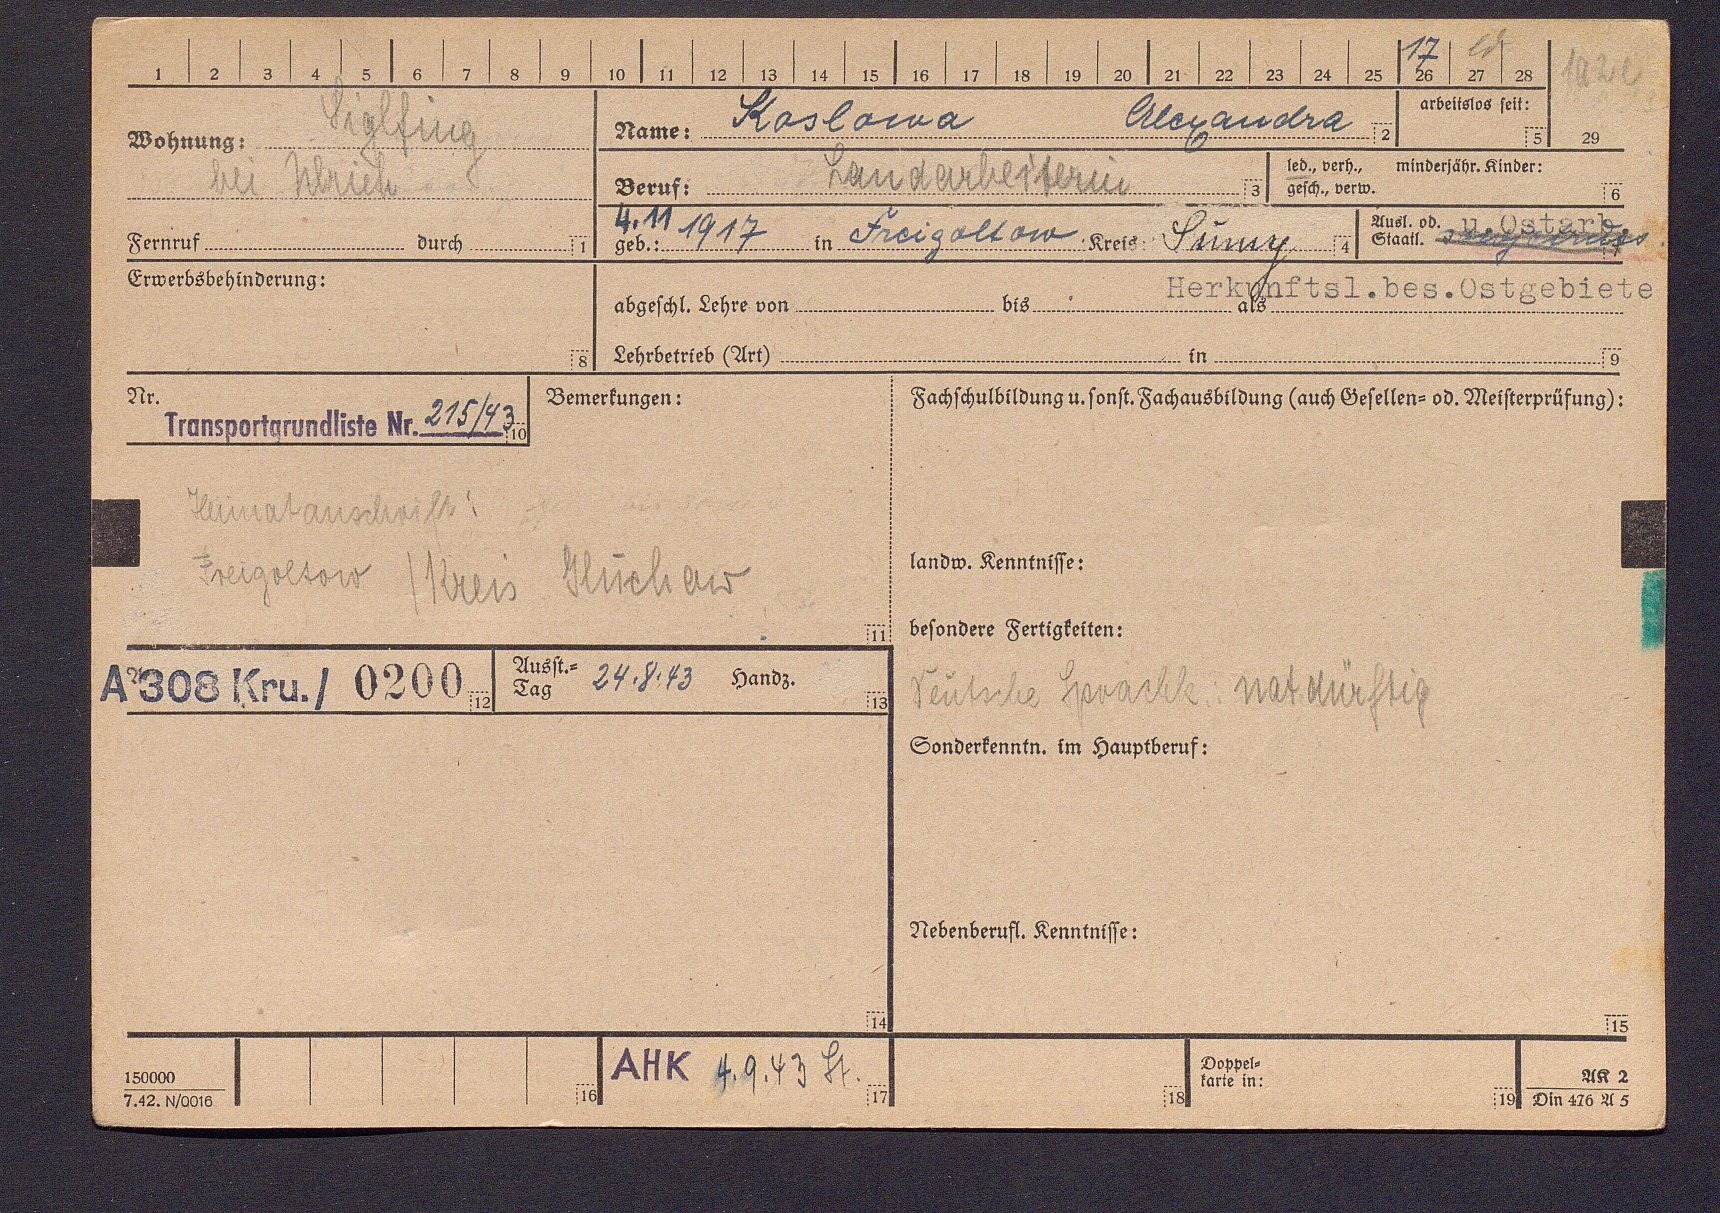 1 2 3 4 5 6 7 8 9 10 11 12 13 14 15 16 17 18 19 20 21 22 23 24 25 26 27 28 29
17
Wohnung: Siglfing
bei Ulrich
Fernruf durch 1
Name: Koslowa Alexandra 2
arbeitslos seit: 5
Beruf: Landarbeiterin 3
led., verh., minderjähr. Kinder:
gesch., verw. 6
4.11
geb.: 1917 in Freigoltow Kreis Sumy 4
Ausl. od. u.Ostarb.
Staatl. 7
Herkunftsl.bes.Ostgebiete
Erwerbsbehinderung:
8
abgeschl. Lehre von bis als
Lehrbetrieb (Art) in 9
Nr.
Transportgrundliste Nr. 215/43 10
Bemerkungen:
Heimatanschrift:
Freigoltow / Kreis Gluchow
11
Fachschulbildung u. sonst. Fachausbildung (auch Gesellen= od. Meisterprüfung):
landw. Kenntnisse:
besondere Fertigkeiten:
Deutsche Sprache: notdürftig
Sonderkenntn. im Hauptberuf:
Nebenberufl. Kenntnisse:
15
A 308 Kru./ 0200 12
Ausst.= 24.8.43 Handz.
Tag 13
14
150000
7.42. N/0016
16
AHK 4.9.43 St. 17
18
Doppel=
karte in: 19
AK 2
Din 476 A 5